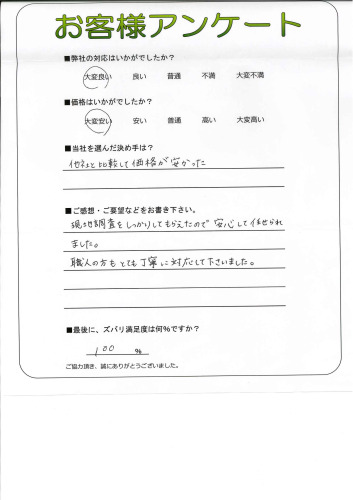 お客様アンケート
■弊社の対応はいかがでしたか?
大変良い 良い 普通 不満 大変不満
■価格はいかがでしたか?
大変安い 安い 普通 高い 大変高い
■当社を選んだ決め手は?
他社と比較して価格が安かった
■ご感想・ご要望などをお書き下さい。
現地調査をしっかりしてもらえたので安心して任せられ
ました。
職人の方もとても丁寧に対応して下さいました。
■最後に、ズバリ満足度は何%ですか?
100 %
ご協力頂き、誠にありがとうございました。